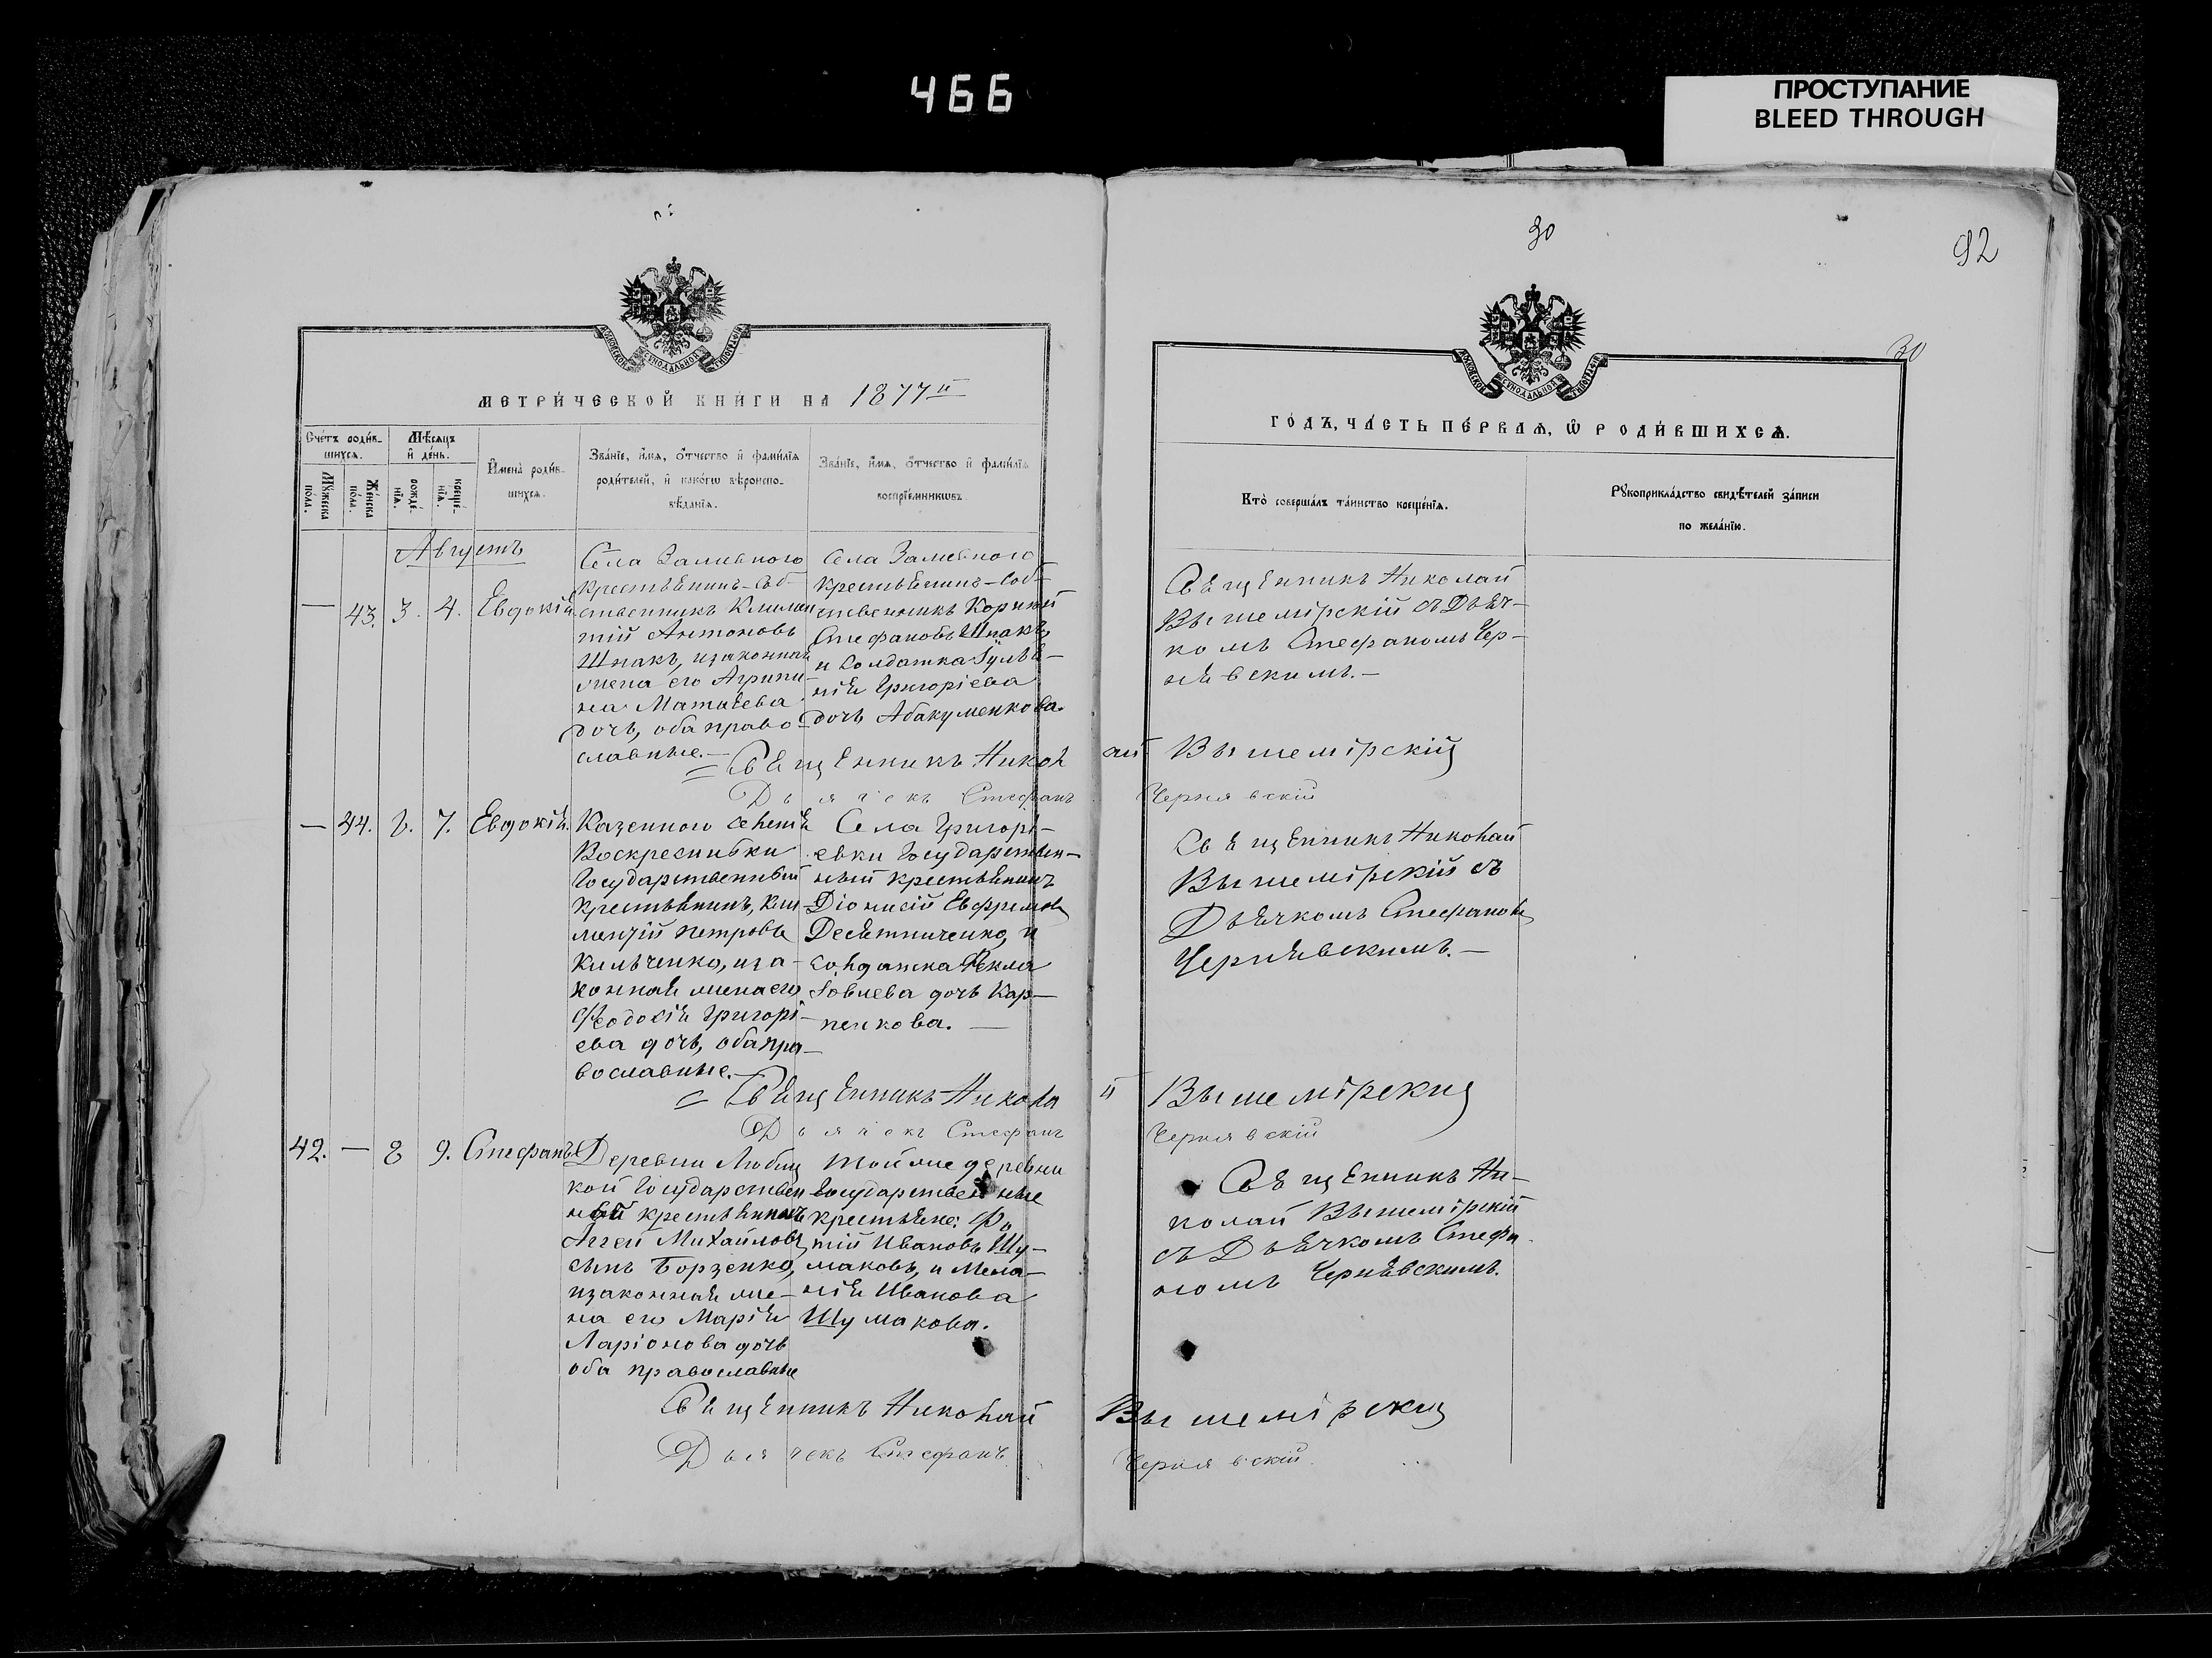 466
ПРОСТУПАНИЕ
BLEED THROUGH
30
92
30
МЕТРИ́ЧЕСКОЙ КНИ́ГИ НА 1877й
Сче́тъ роди́в-
шихсѧ.
Мꙋ́жеска
по́ла.
Же́нска
по́ла.
Мѣ́сѧцъ
и҆ де́нь.
рожде́-
нїѧ.
креще́-
нїѧ.
И҆мена̀ роди́в-
шихсѧ.
Зва́нїе, и҆́мѧ, ѻ҆́тчество и҆ фами́лїѧ
роди́телей, и҆ како́гѡ вѣроиспо-
вѣ́данїѧ.
Зва́нїе, и҆́мѧ, ѻ҆́тчество и҆ фами́лїѧ
воспрїе́мникѡвъ.
ГО́ДЪ, ЧА́СТЬ ПЕ́РВАѦ, Ѡ҆ РОДИ́ВШИХСѦ.
Кто̀ соверша́лъ та́инство креще́нїѧ.
Рꙋкоприкла́дство свидѣ́телей за́писи
по жела́нїю.
Августъ
— 43. 3. 4. Евдокія
Села Заливного
крестьянинъ-соб-
ственникъ
Антоновъ
Шпакъ, изаконная
жена его Агрипи-
на Матвеева
дочь, оба право-
славные.—
Села Заливного
крестьянинъ-соб-
ственникъ Корнилій
Стефановъ Шпакъ,
и солдатка Іуліа-
нія Григоріева
дочь Абакуменкова.
Священникъ Николай
Вышемірскій съ Дьяч-
комъ Стефаномъ Чер-
нявскимъ.—
= Священникъ Николай Вышемірскій
Дьячекъ Стефанъ Чернявскій
— 44. 6. 7. Евдокія.
Казенного селенія
Воскресеновки
Государственный
крестьянинъ, Кли-
ментій Петровъ
Кильченко, иза-
конная жена его
Феодосія Григорі-
ева дочь, оба пра-
вославные.—
Села Григорі-
евки Государствен-
ный крестьянинъ
Діонисій Евфремовъ
Десятниченко, и
солдатка Фекла
Іовлева дочь Кар-
пенкова.—
Священникъ Николай
Вышемірскій съ
Дьячкомъ Стефаномъ
Чернявскимъ.—
= Священникъ Николай Вышемірскій
Дьячекъ Стефанъ Чернявскій
42. — 8 9. Стефанъ
Деревни Любиц
кой Государствен
ный крестьянинъ
Аггей Михайловъ
сынъ Борзенко,
изаконная же-
на его Марія
Ларіонова дочь
оба православные
Той же деревни
Государственные
крестьяне: Фо
тій Ивановъ Шу-
маковъ, и Мела-
нія Иванова
Шумакова.
Священникъ Ни-
колай Вышемірскій
съ Дьячкомъ Стефа-
номъ Чернявскимъ.
Священникъ Николай Вышемірскій
Дьячекъ Стефанъ Чернявскій